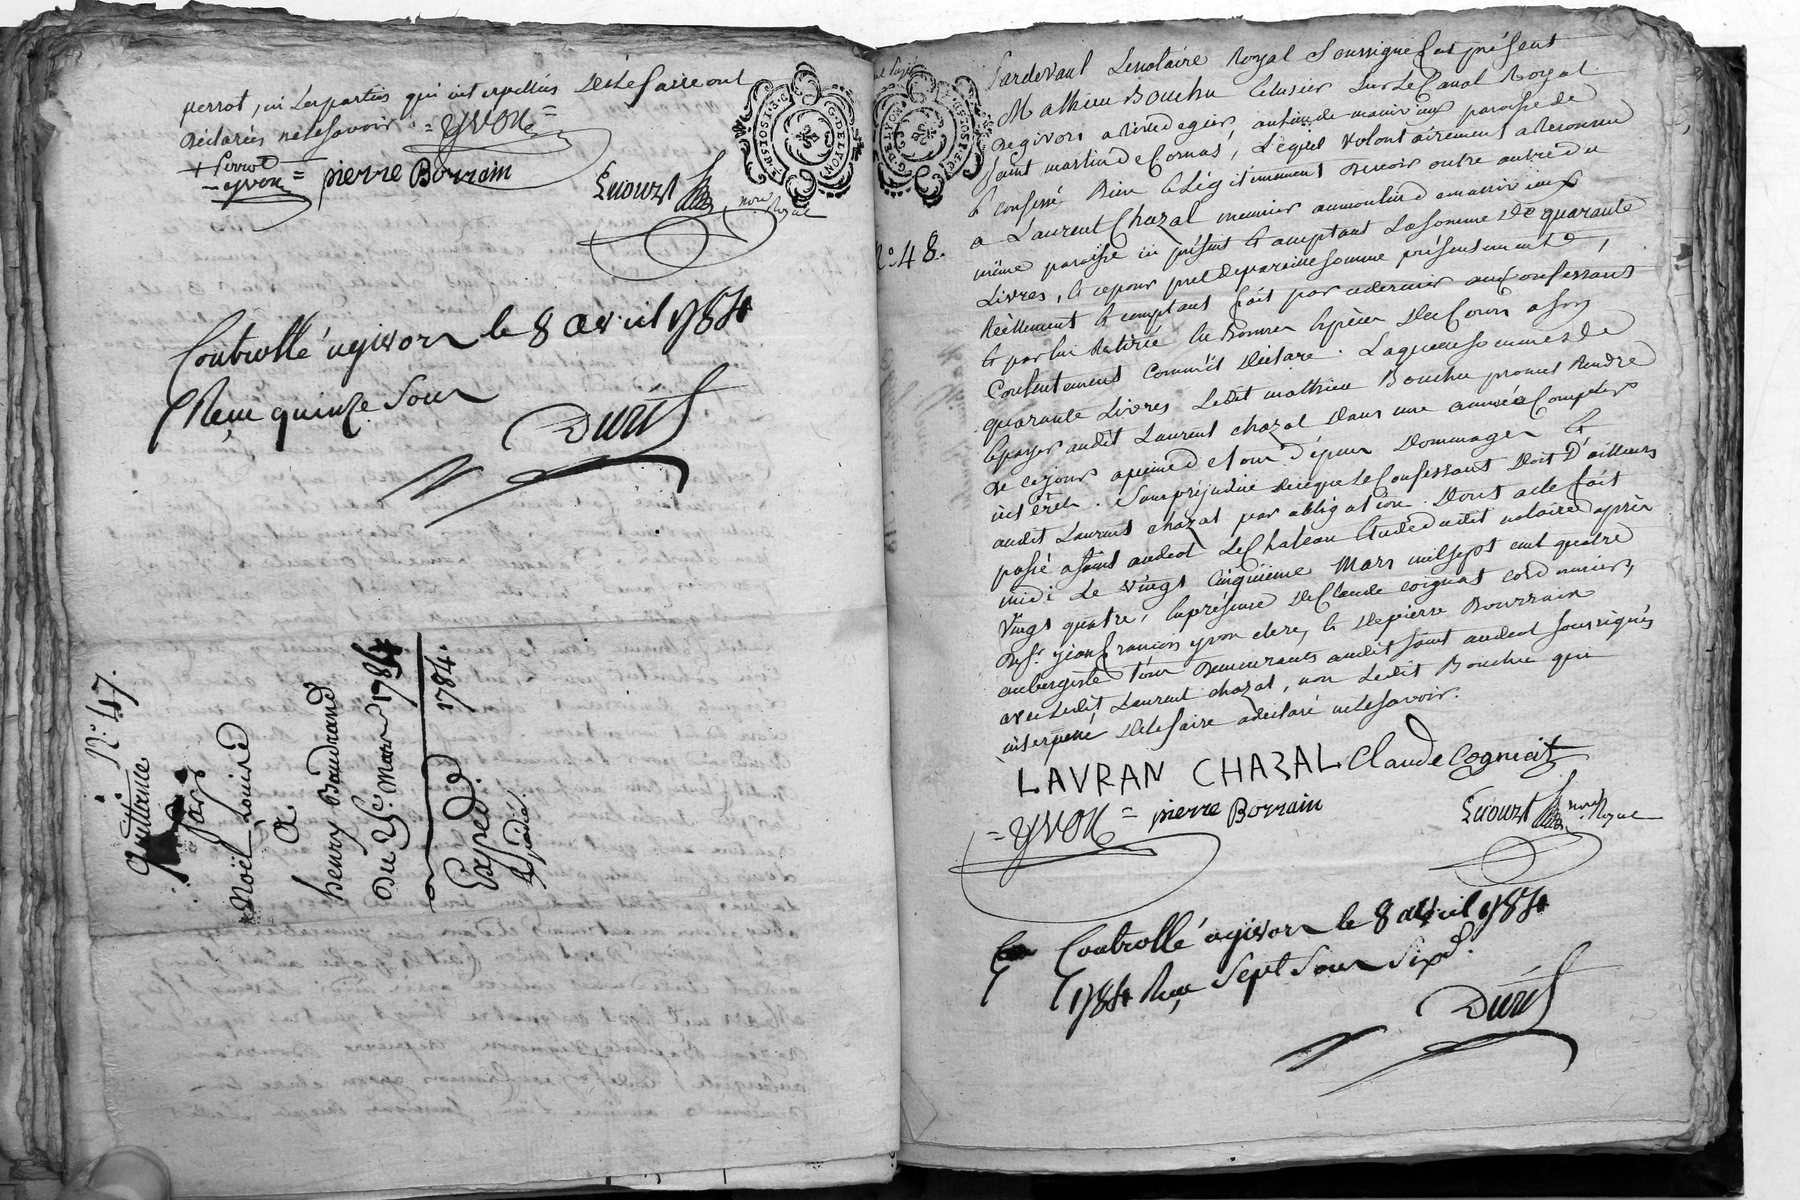 perrot, ni les parties qui interpellées de le faire ont
déclarées ne le savoir. = YVON =
+ perrot
= yvon = pierre Borrain
Lucourt nore Royal
G. DE LYON
Controllé a givors le 8 avril 1784
Reçu quinze sous
Duret
N.° 47.
Quittance
par
Noël Louise
a
henry Baudrand
Du 25e. Mars 1784
1784.
Exped.
Expédié.
G. DE LYON
N.° 48.
Pardevant Le notaire Royal Soussigné fut présent
Mathieu Bouchu Eclusier sur Le Canal Royal
de givors a rivedegier, au lieu de manivieux paroisse de
saint martin de Cornas, Lequel volontairement a Reconnu
et confessé Bien et légitimement devoir outre autre du
a Laurent Chazal meunier au moulin de manivieux
même paroisse ici présent et acceptant La somme de quarante
Livres, et ce pour prêt de pareille somme présentement
Réellement et comptant fait par ce dernier au Confessant
et par lui Retirée en Bonnes Espèces de Cours a son
Contentement comm'il déclare. Laquelle somme de
quarante Livres Ledit mathieu Bouchu promet Rendre
et payer audit Laurent chazal dans une année a Compter
de ce jour a peine de tous dépens dommages et
intérêts. sans préjudice de ce que Le Confessant doit d'ailleurs
audit Laurent chazal par obligation. Dont acte fait
passé a saint andeol Le Chateau Etude dudit notaire après
midi Le vingt Cinquieme Mars mil sept cent quatre
vingt quatre, En présence de Claude Coignat cordonnier,
de sr. jean francois yvon clerc, et de pierre Bourrain
aubergiste tous demeurants audit saint andeol soussignés
avec Ledit Laurent chazal, non Ledit Bouchu qui
interpellé de le faire a déclaré ne le savoir.
LAVRAN CHAZAL Claude Cogniat
= YVON = pierre Borrain
Lucourt nore Royal
Controllé a givors le 8 avril 1784
1784 Reçu sept sous six d.
Duret